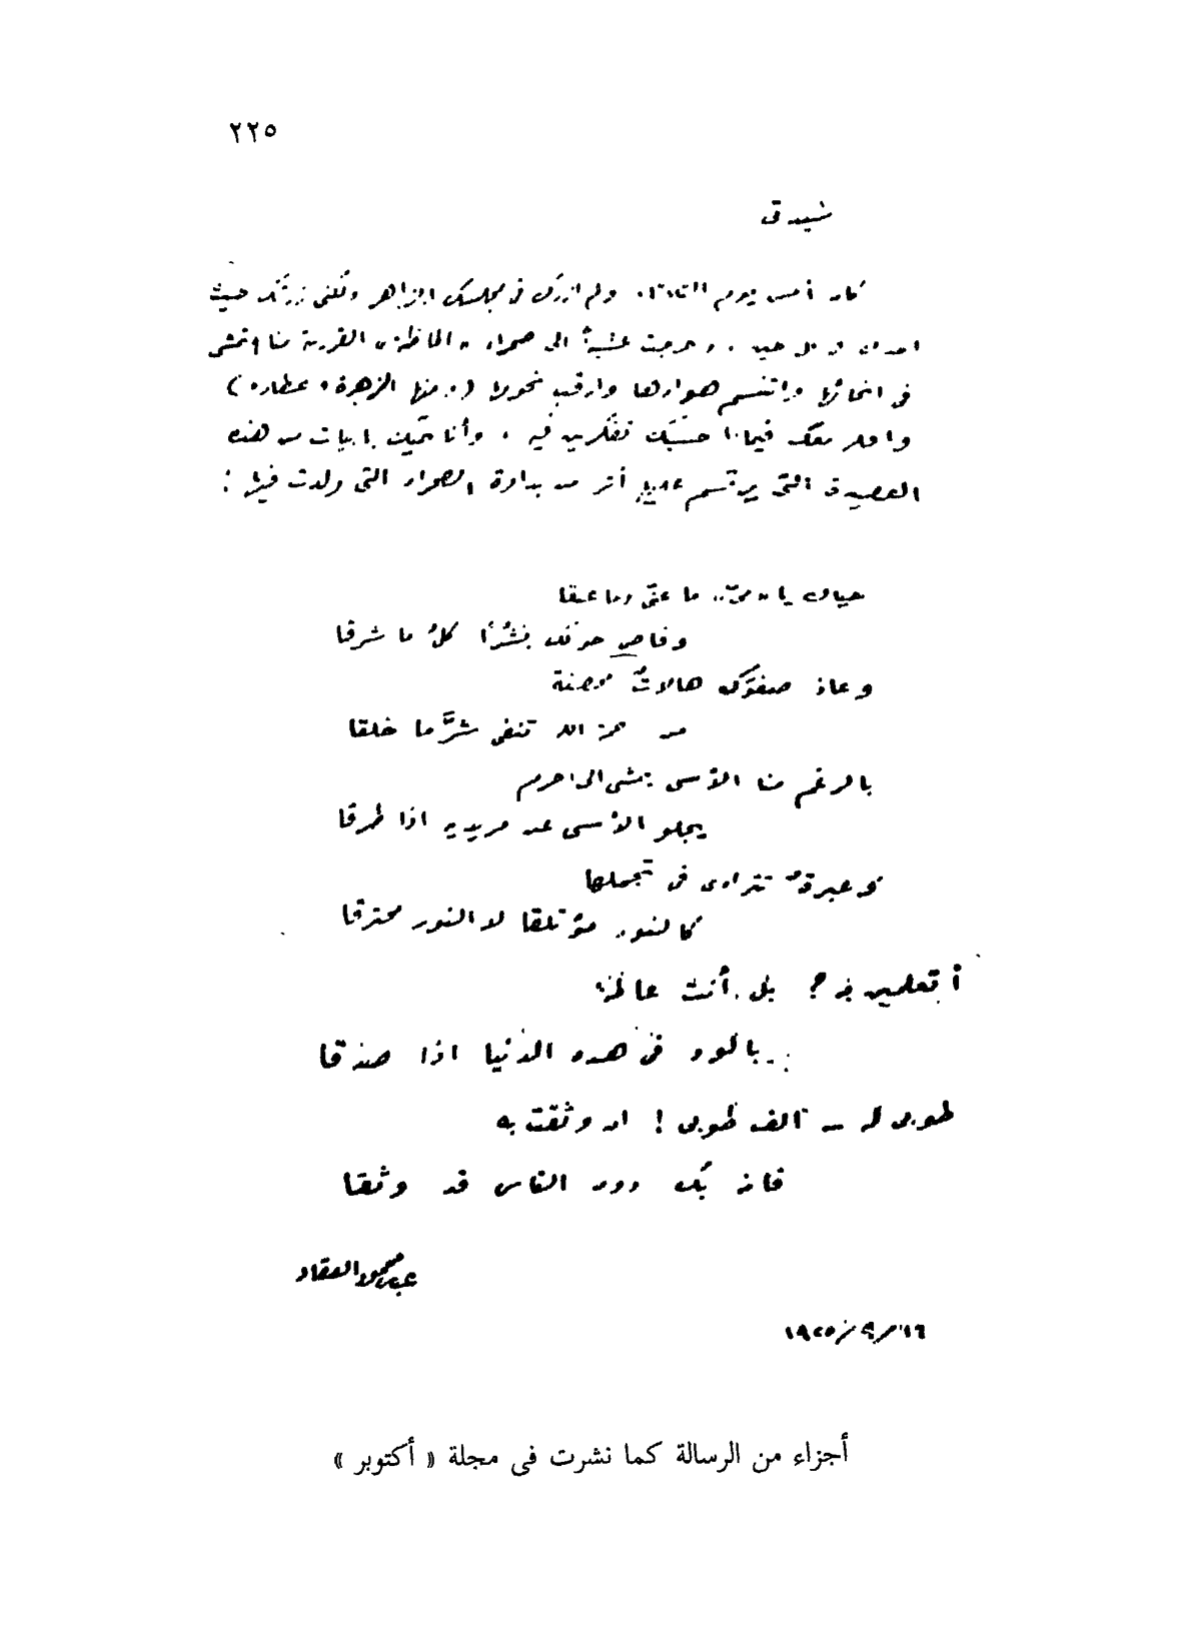 ٢٢٥
سيدتى
كان أمس يوم الثلاثاء. ولم ازرك فى مجلسك الزاهر ولكنى زرتك حيث
اراك فى كل حين. وخرجت عشية الى صحراء "الماظة" القريبة منا اتمشى
فى انحائها واتنسم هواءها وارقب نجومها (ومنها الزهرة وعطارد)
وافكر معك فيما حسبتك تفكرين فيه. وأنا محييك بابيات من هذه
القصيدة التى يرتسم عليها أثر من بداوة الصحراء التى ولدت فيها:
حياك يا "مىّ".. ما عنّى وما عبقا
وفاض حولك بِشْرًا كلُّ ما شرقا
وعاذ صفوَك هالاتٌ محصنة
من الله تنفى شرَّ ما خلقا
بالرغم منا الأسى يمشى الى حرم
يجلو الأسى عن مريديه اذا طرقا
وعبرةٌ تتراءى فى تجملها
كالنور مؤتلقا لا النور محترقا
أتعلمين به؟ بلى. أنت عالمة
بالود فى هذه الدنيا اذا صدقا
طوبى له – ألف طوبى! ان وثقت به
فانه بكِ دون الناس قد وثقا
عباس محمود العقاد
١٦ / ٩ / ١٩٢٥
أجزاء من الرسالة كما نشرت فى مجلة « أكتوبر »